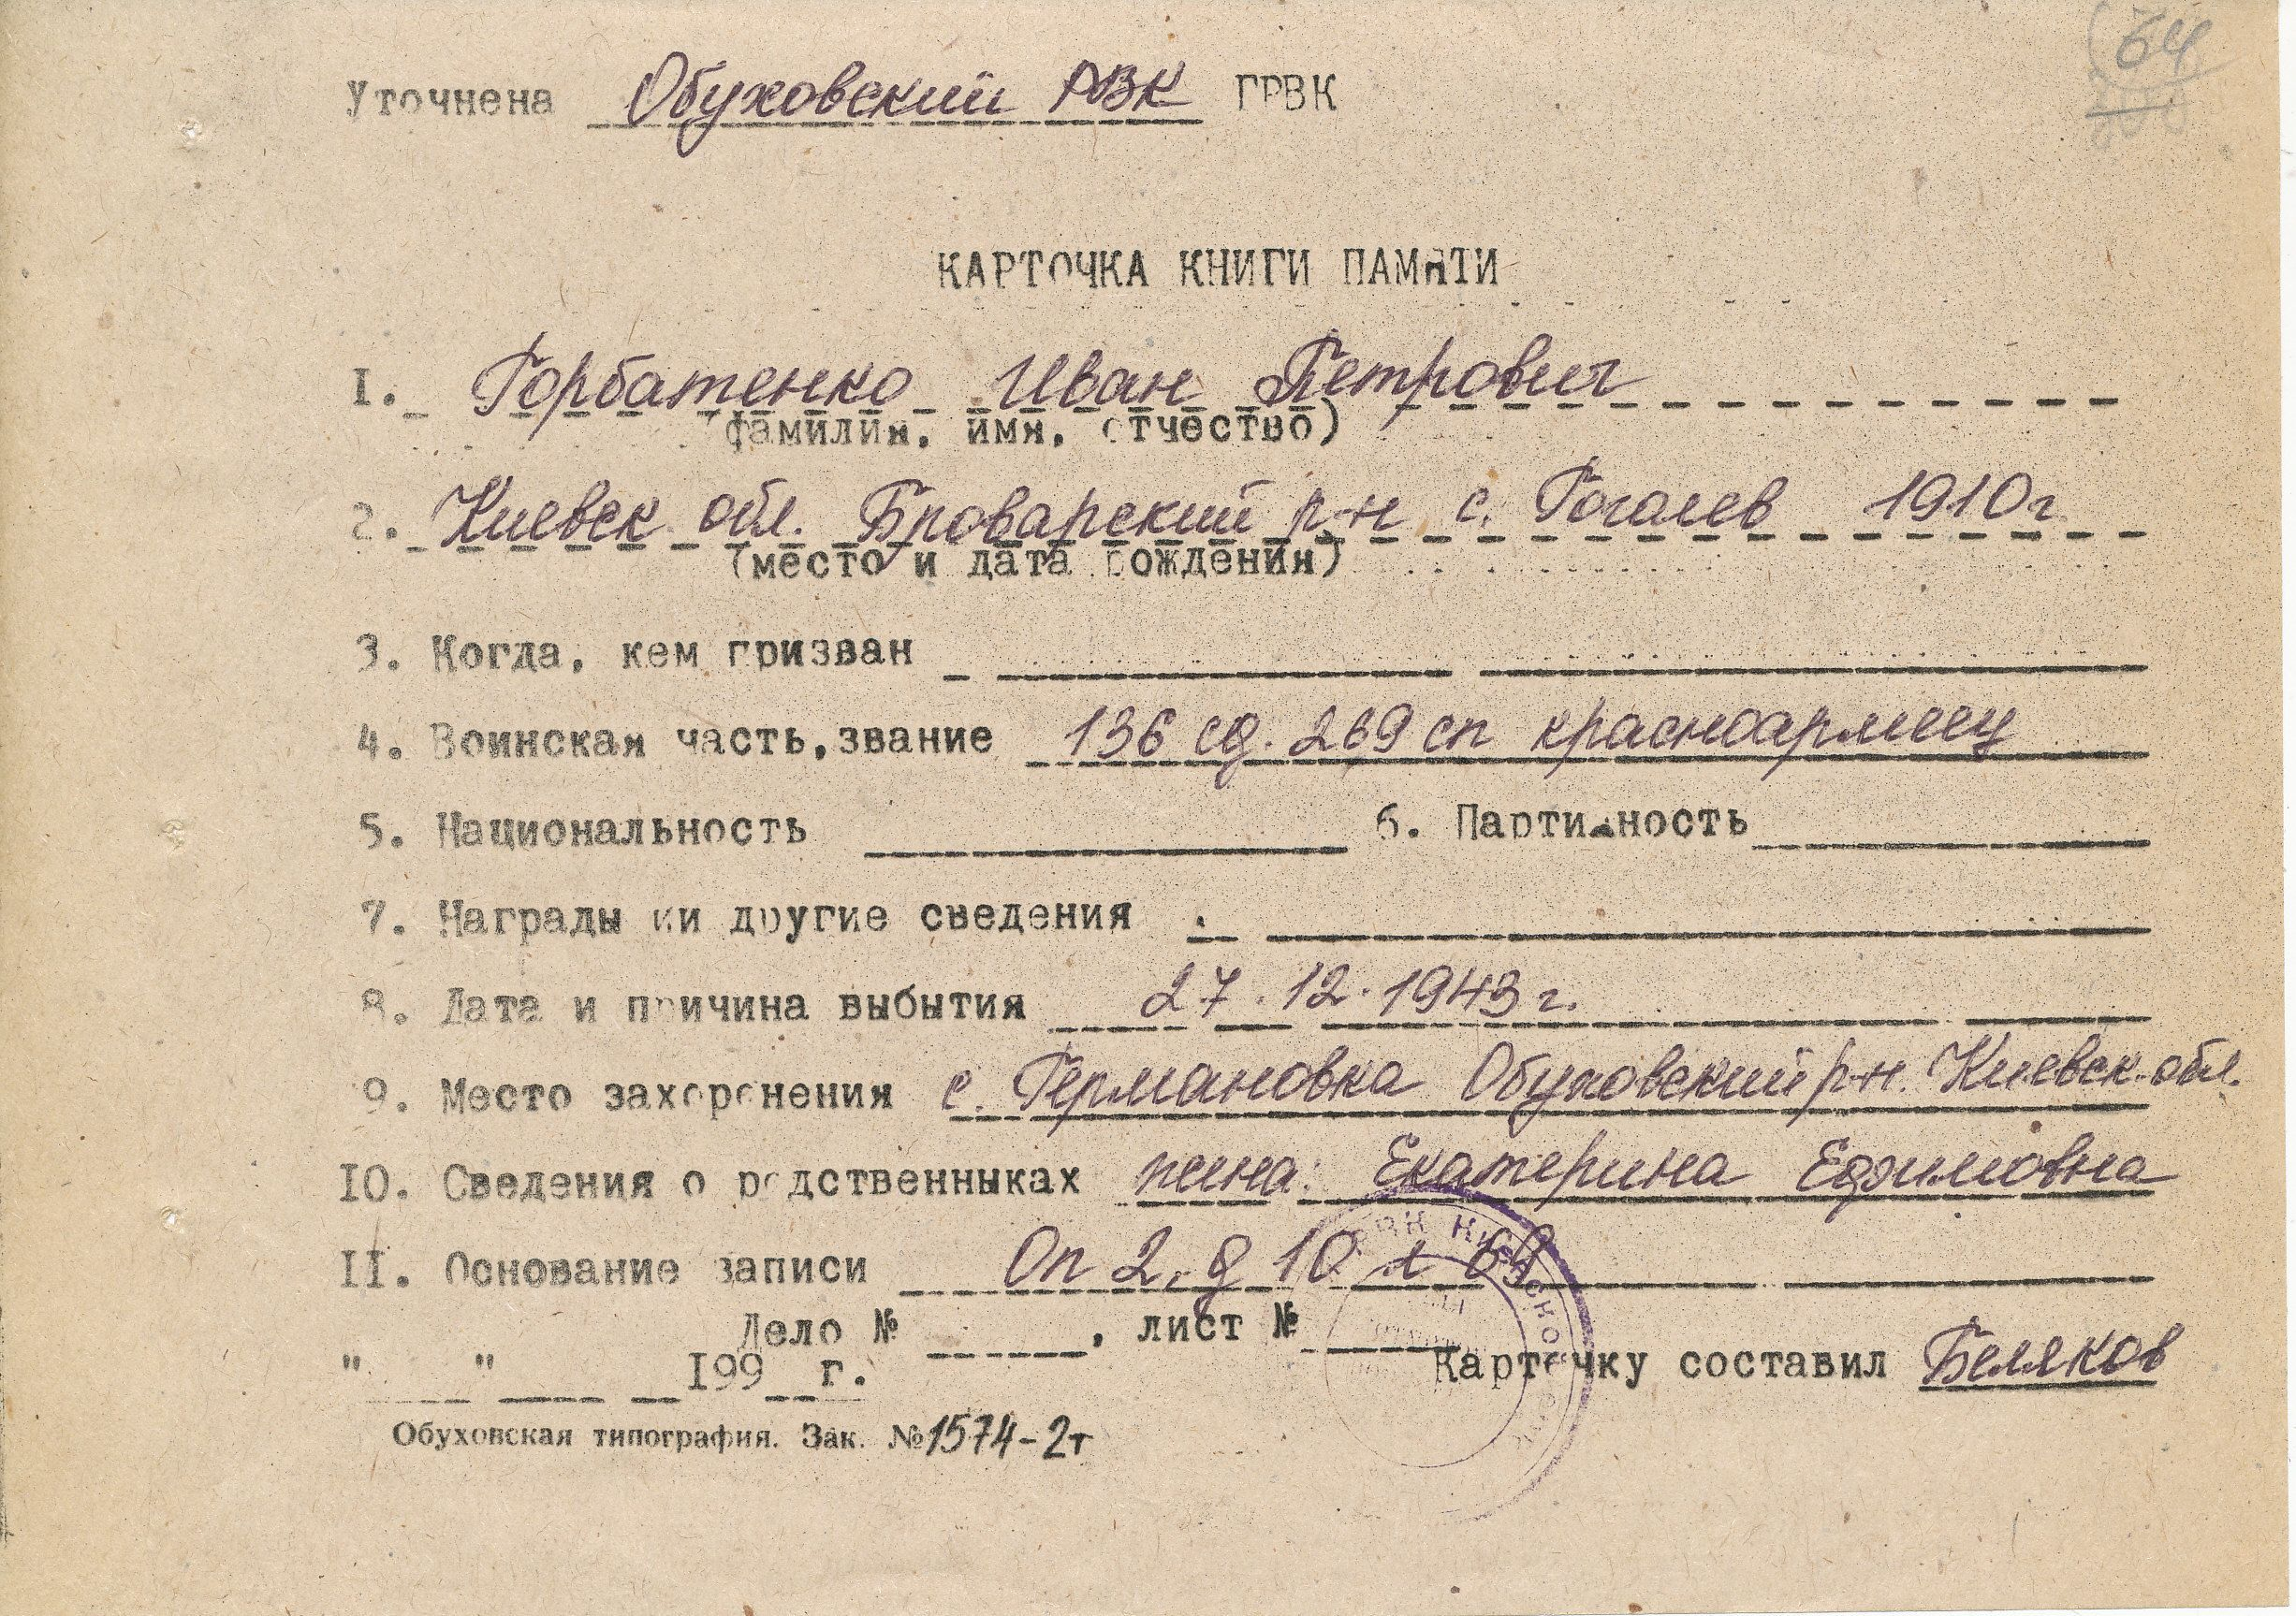 64
Уточнена Обуховский РВК ГРВК
КАРТОЧКА КНИГИ ПАМЯТИ
I. Горбатенко Иван Петрович
(фамилия, имя, отчество)
2. Киевск обл. Броварский р-н с. Гоголев 1910г
(место и дата рождения)
3. Когда, кем призван
4. Воинская часть, звание 136 сд. 269 сп красноармеец
5. Национальность 6. Партийность
7. Награды ии другие сведения
8. Дата и причина выбытия 27.12.1943г.
9. Место захоронения с. Германовка Обуховский р-н. Киевск. обл.
IO. Сведения о родственныках жена: Екатерина Ефимовна
II. Основание записи Оп 2, д 10 л 69
Дело № , лист №
" " I99 г. Карточку составил Беляков
Обуховская типография. Зак. №1574-2т